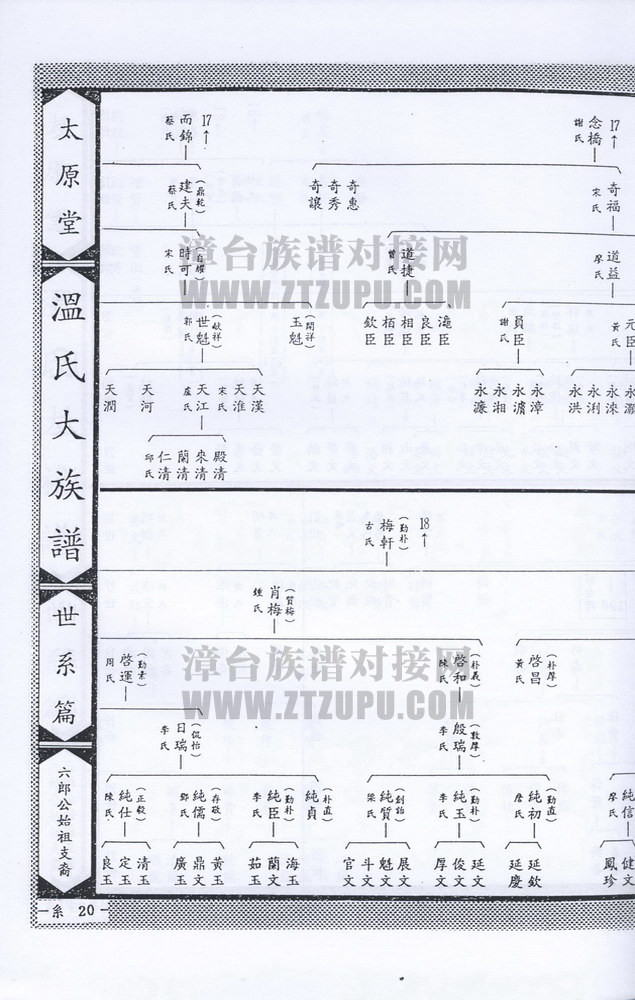 太原堂
溫氏大族譜
世系篇
六郎公始祖支裔
系 20
17
念橋
謝氏
奇福
宋氏
奇惠
奇秀
奇讓
道益
廖氏
道捷
曾氏
元臣
黃氏
員臣
謝氏
滝臣
良臣
相臣
栢臣
欽臣
永洌
永洪
永漳
永濱
永湘
永濂
17
而錦
蔡氏
建夫
(鼎乾)
蔡氏
時可
(自耀)
宋氏
玉魁
(開祥)
世魁
(岐祥)
郭氏
天漢
天淮
宋氏
天江
盧氏
天河
天潤
殿清
來清
蘭清
仁清
邱氏
18
梅軒
(勤朴)
古氏
肖梅
(質梅)
鍾氏
啓昌
(朴厚)
黃氏
啓和
(朴義)
陳氏
啓運
(勤素)
周氏
殷瑞
(敦厚)
李氏
日瑞
(侃怡)
李氏
純信
廖氏
純初
(勤直)
詹氏
純玉
(勤朴)
李氏
純質
(創始)
梁氏
純貞
(朴直)
純臣
(勤朴)
李氏
純儒
(存敬)
鄧氏
純仕
(正毅)
陳氏
健文
鳳珍
延欽
延慶
廷文
俊文
厚文
展文
魁文
斗文
官文
海玉
蘭玉
茹玉
黃玉
鼎玉
廣玉
清玉
定玉
良玉
漳台族谱对接网
WWW.ZTZUPU.COM
漳台族谱对接网
WWW.ZTZUPU.COM